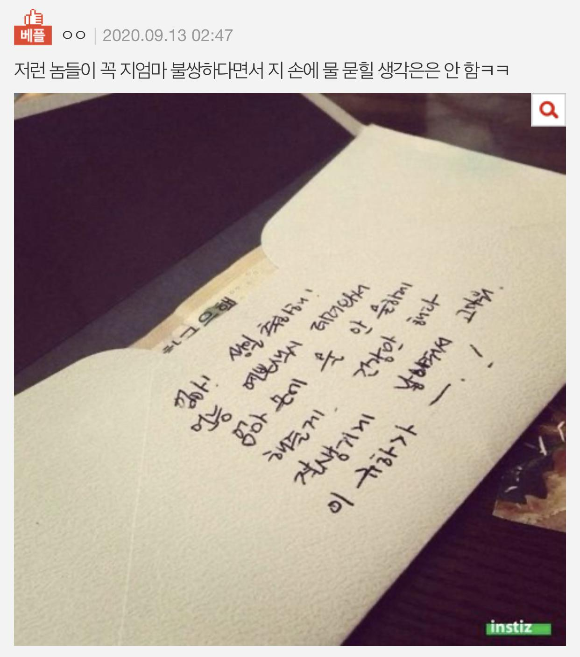 베플 ㅇㅇ 2020.09.13 02:47
저런 놈들이 꼭 지엄마 불쌍하다면서 지 손에 물 묻힐 생각은은 안 함ㅋㅋ
엄마! 생일 축하해!
얼릉 예쁜색시 데려와서
엄마 손에 물 안 묻히게
해줄게. 건강만 해라
잘생기게 낳아줘서 고마워.
이 규한가 —!!
instiz